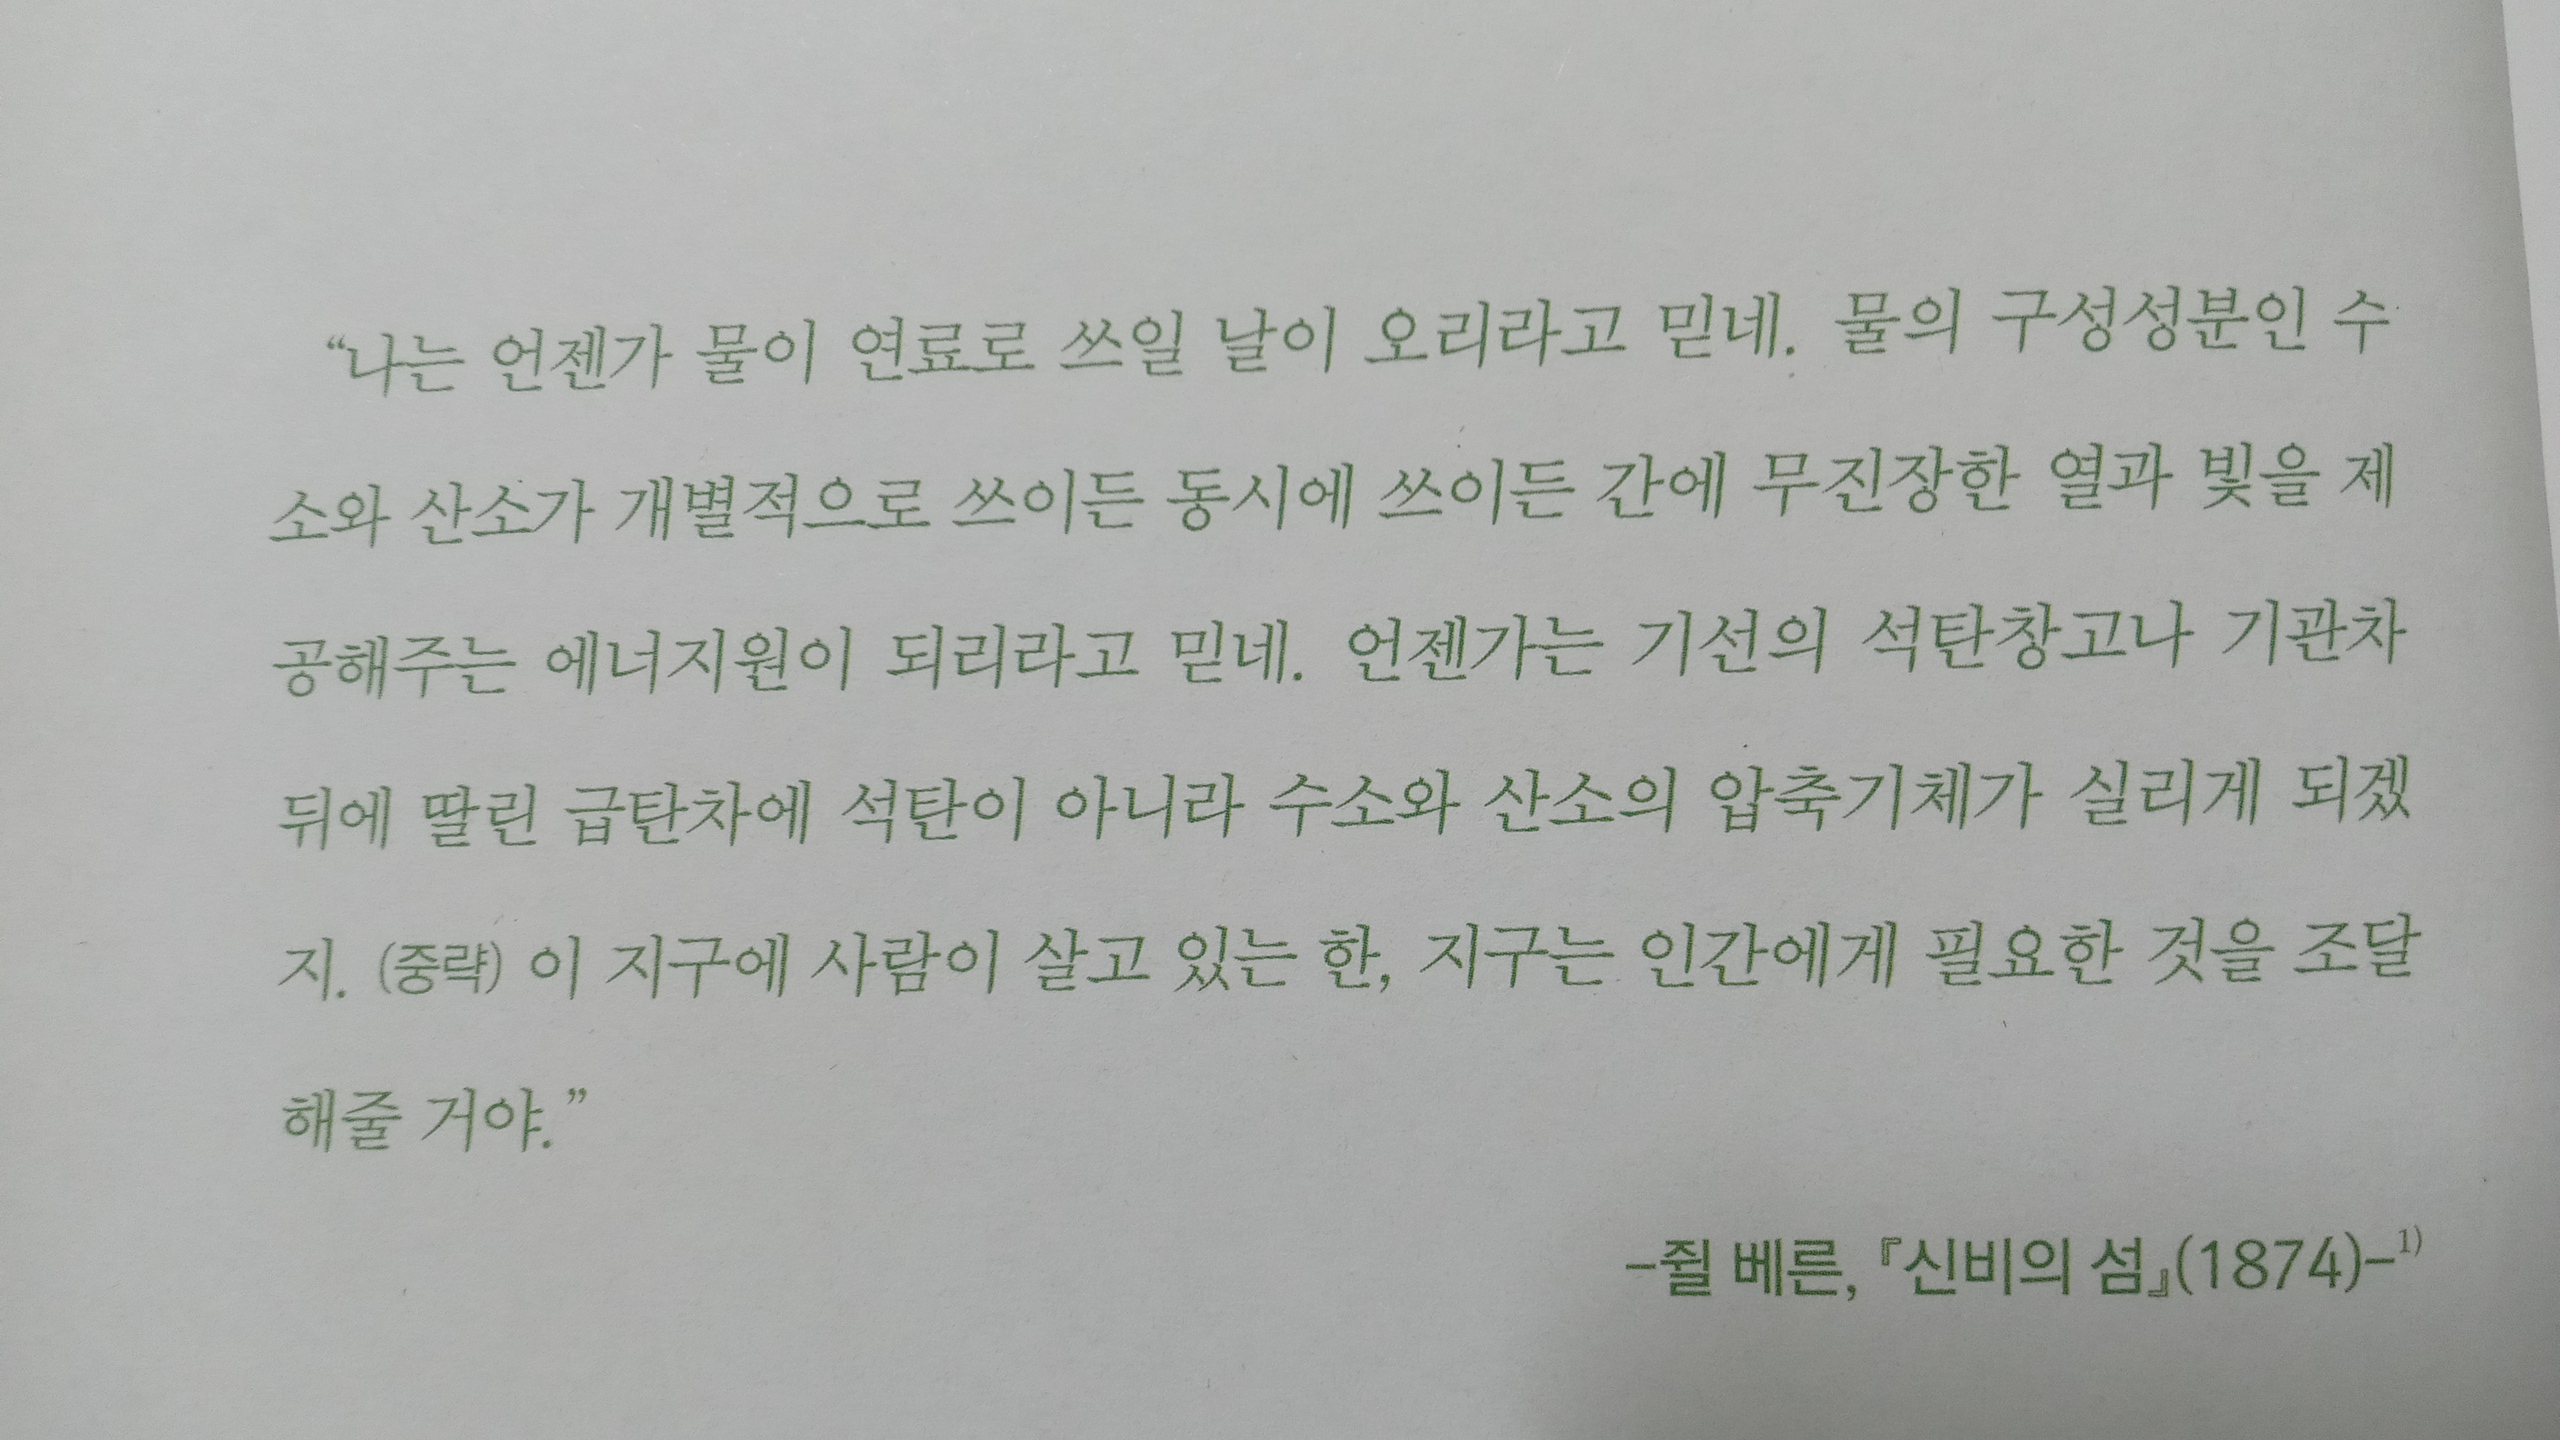 “나는 언젠가 물이 연료로 쓰일 날이 오리라고 믿네. 물의 구성성분인 수
소와 산소가 개별적으로 쓰이든 동시에 쓰이든 간에 무진장한 열과 빛을 제
공해주는 에너지원이 되리라고 믿네. 언젠가는 기선의 석탄창고나 기관차
뒤에 딸린 급탄차에 석탄이 아니라 수소와 산소의 압축기체가 실리게 되겠
지. (중략) 이 지구에 사람이 살고 있는 한, 지구는 인간에게 필요한 것을 조달
해줄 거야.”
–쥘 베른, 『신비의 섬』(1874)–1)